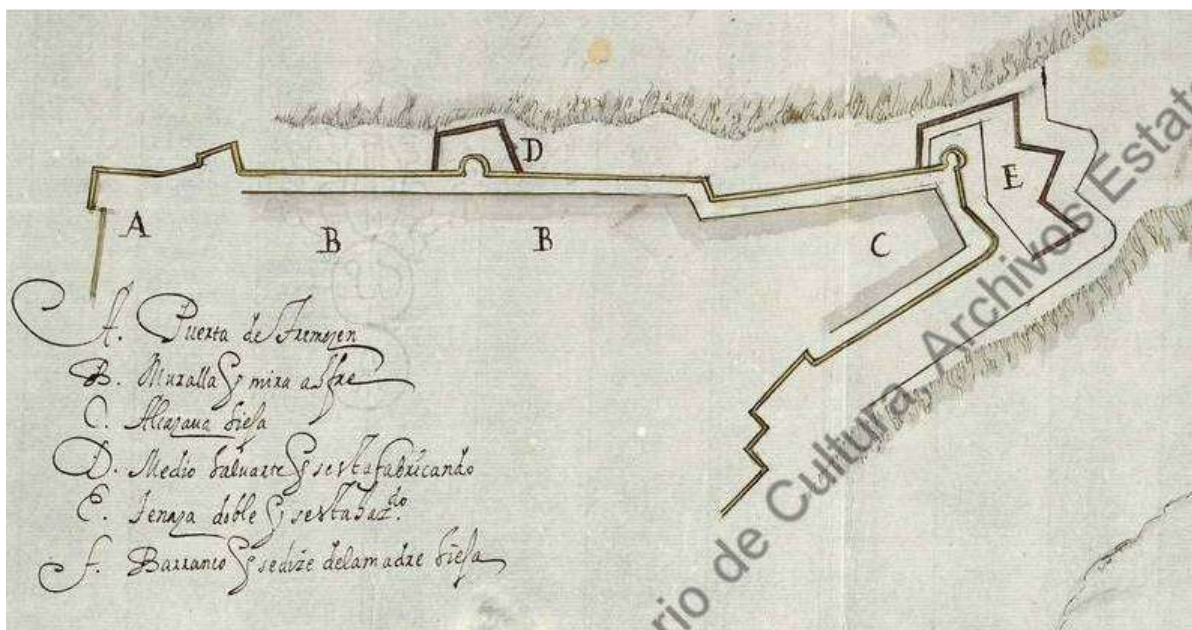 A
B
B
C
D
E
A. Puerta de Tremesen
B. Muralla q mira a
C. Alcazaua bieja
D. Medio baluarte q se esta fabricando
E. Tenaza doble q se esta haz.do
F. Barranco q se dize de la madre bieja
rio de Cultura, Archivos Estat